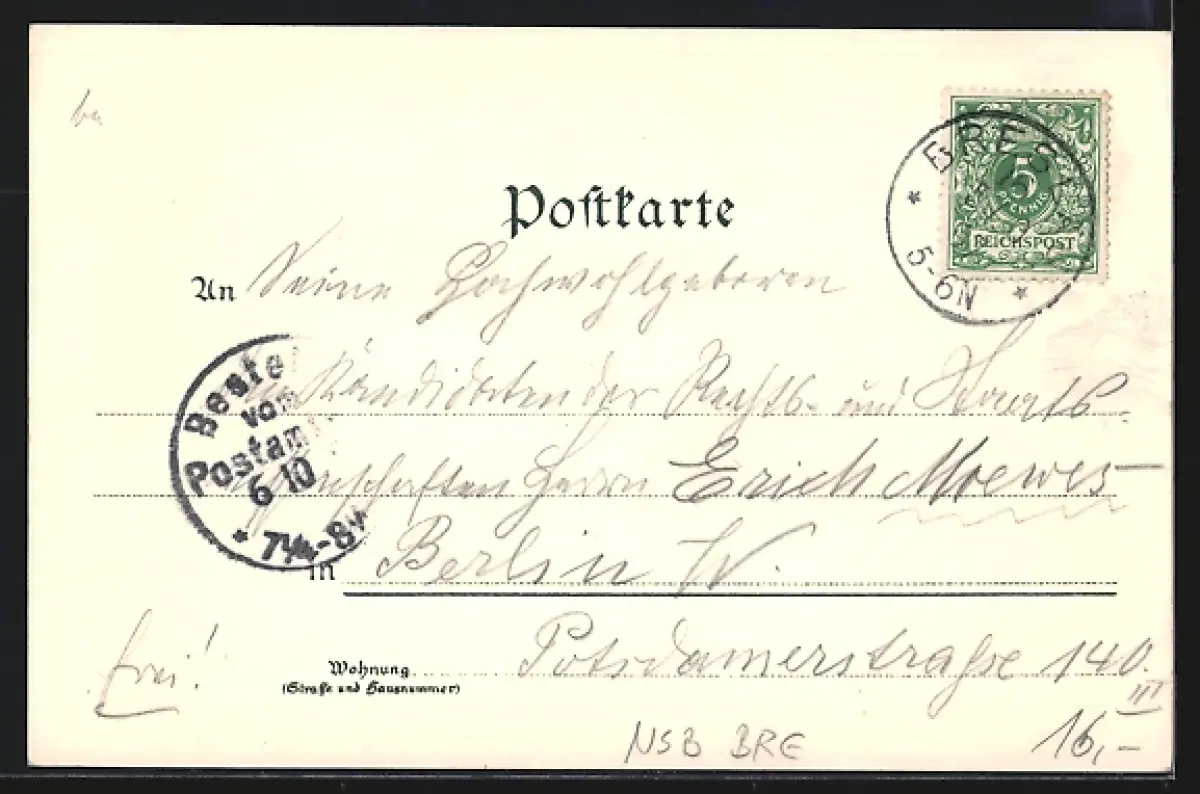 Postkarte
BRESL
5 PFENNIG
REICHSPOST
5-6N
An Seine Hochwohlgeboren
Kandidaten der Rechts- und Staats-
wissenschaften Herrn Erich Moewes
Bestellt
vom
Postamt
6 10
7¼-8V
in Berlin W.
frei!
Wohnung Potsdamerstraße 140.
(Straße und Hausnummer)
III
NSB BRE
16,-